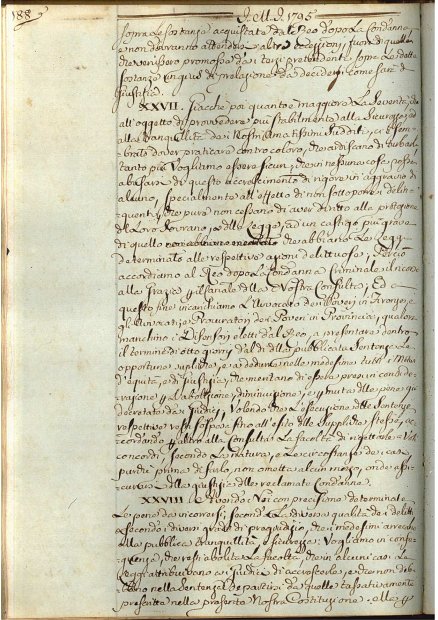 188
A. M. D. 1795
sopra le sostanze acquistate dal Reo dopo la Condanna,
e non dovranno attendere altre eccessioni, fuori di quelle
che venissero promosse da terzi pretendenti sopra le dette
sostanze
giustizia.
XXVII. Giacchè per quanto è maggiore la severità, che
all'oggetto di provvedere più stabilmente alla sicurezza, ed
alla tranquillità dei Nostri amatissimi sudditi, ci è sem-
brato dover praticare contro coloro, che ardissero di turbarla,
tanto più Vogliamo essere sicuri, che in nessuna cosa possa
abusarsi di questo accrescimento di rigore in aggravio di
alcuno, specialmente all'effetto di non sottoporre i delin-
quenti, che pure non cessano di aver diritto alla protezione
del loro Sovrano, e delle Leggi, ad un castigo più grave
di quello che abbiano le Leggi
determinato alle respettive azioni delittuose; Perciò
accordiamo al Reo dopo la Condanna Criminale il ricorso
alla grazia, ed al canale della Nostra Consulta; Ed a
questo fine incarichiamo l'Avvocato dei Poveri in Firenze, e
gli Procuratori dei Poveri in Provincia, qualora
manchino i Difensori eletti dal Reo, a presentare dentro
il termine di otto giorni dal dì della pubblicata Sentenza le
opportune suppliche, e a dedurre nelle medesime tutti i motivi
d'equità, e di giustizia, che meritano di essere presi in conside-
razione per l'abolizione, diminuzione, e permuta delle pene
decretate dai Giudici; Volendo che l'esecuzione delle Sentenze
respettive resti sospesa fino all'esito delle suppliche stesse, ac-
cordando peraltro alla Consulta la facoltà di rigettarle
secondo la natura, e le circostanze dei casi,
purchè prima di farlo, non ometta alcun mezzo, onde assi-
curarsi della giustizia delle reclamate Condanne.
XXVIII Avendo Noi con precisione determinate
le pene da incorrersi, secondo la diversa qualità dei delitti
e secondo i diversi gradi di pregiudizio, che i medesimi arrecano
alla pubblica tranquillità, e sicurezza; Vogliamo in conse-
guenza, che resti abolita la facoltà, che in alcuni casi le
Leggi attribuivano ai Giudici di accrescerle, e che non deb-
bano nelle Sentenze dipartirsi da quelle tassativamente
prescritte nella presente Nostra Costituzione, alle